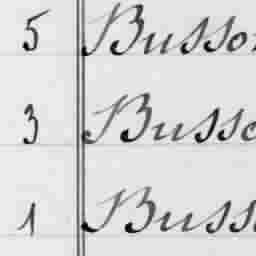 5 Busso
3 Busso
1 Buss